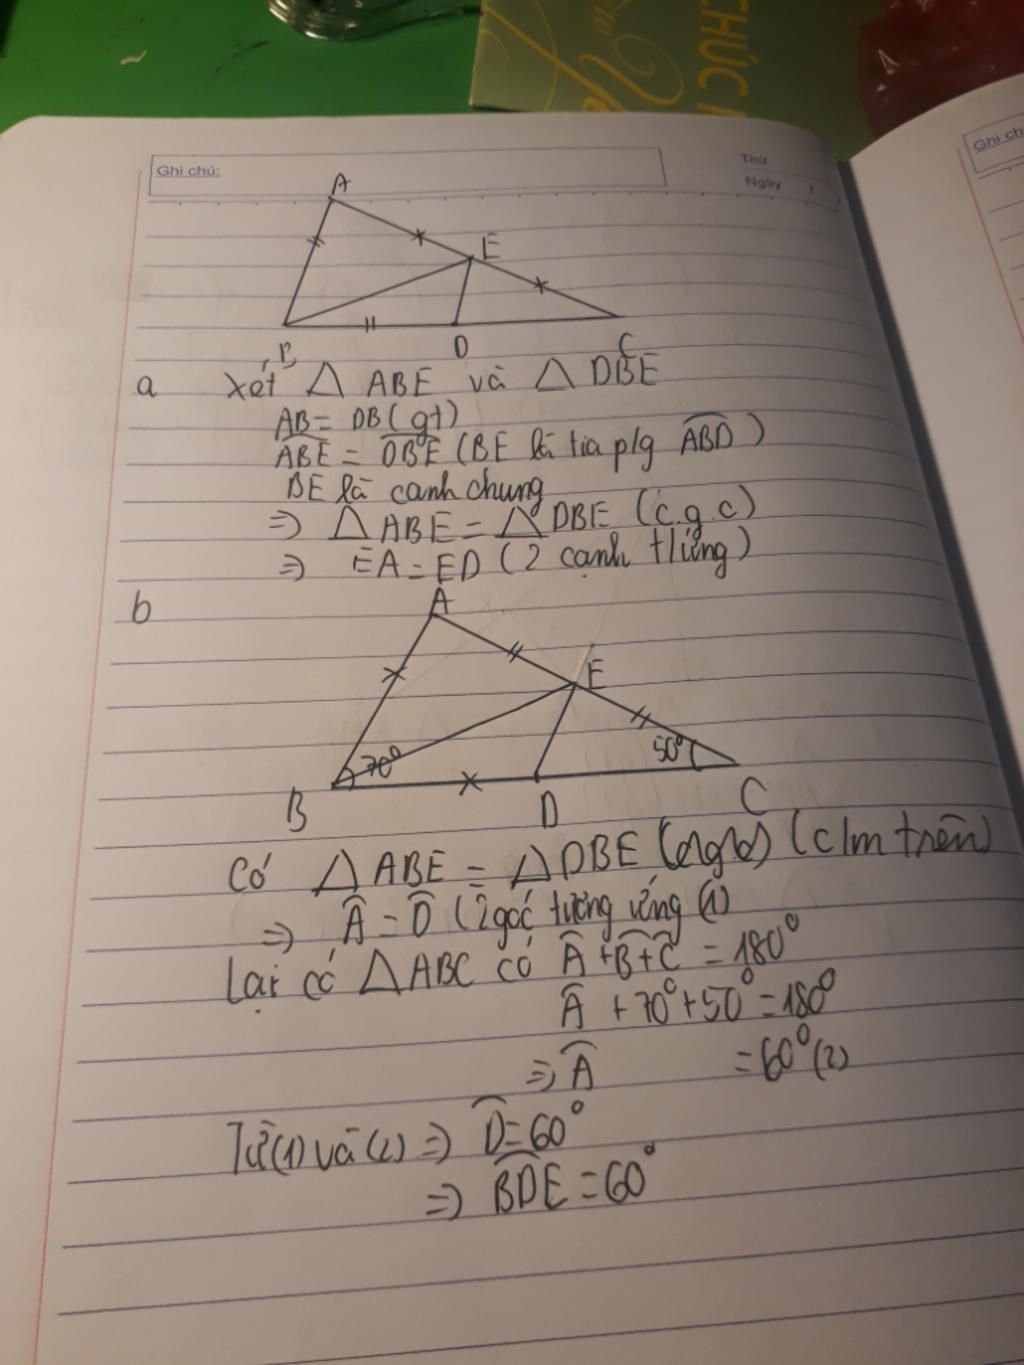 CHÚC
Ghi chú:
Thứ
Ngày
Ghi ch
A
E
B
D
C
a Xét △ ABE và △ DBE
AB = DB (gt)
ABE = DBE (BE là tia p/g ABD)
BE là cạnh chung
⇒ △ ABE = △ DBE (c.g.c)
⇒ EA = ED (2 cạnh t/ứng)
b
A
E
70° 50°
B D C
Có △ ABE = △ DBE (c/m trên)
⇒ Â = D̂ (2 góc tương ứng (1)
Lại có △ABC có Â + B̂ + Ĉ = 180°
Â + 70° + 50° = 180°
⇒ Â = 60° (2)
Từ (1) và (2) ⇒ D̂ = 60°
⇒ BDE = 60°